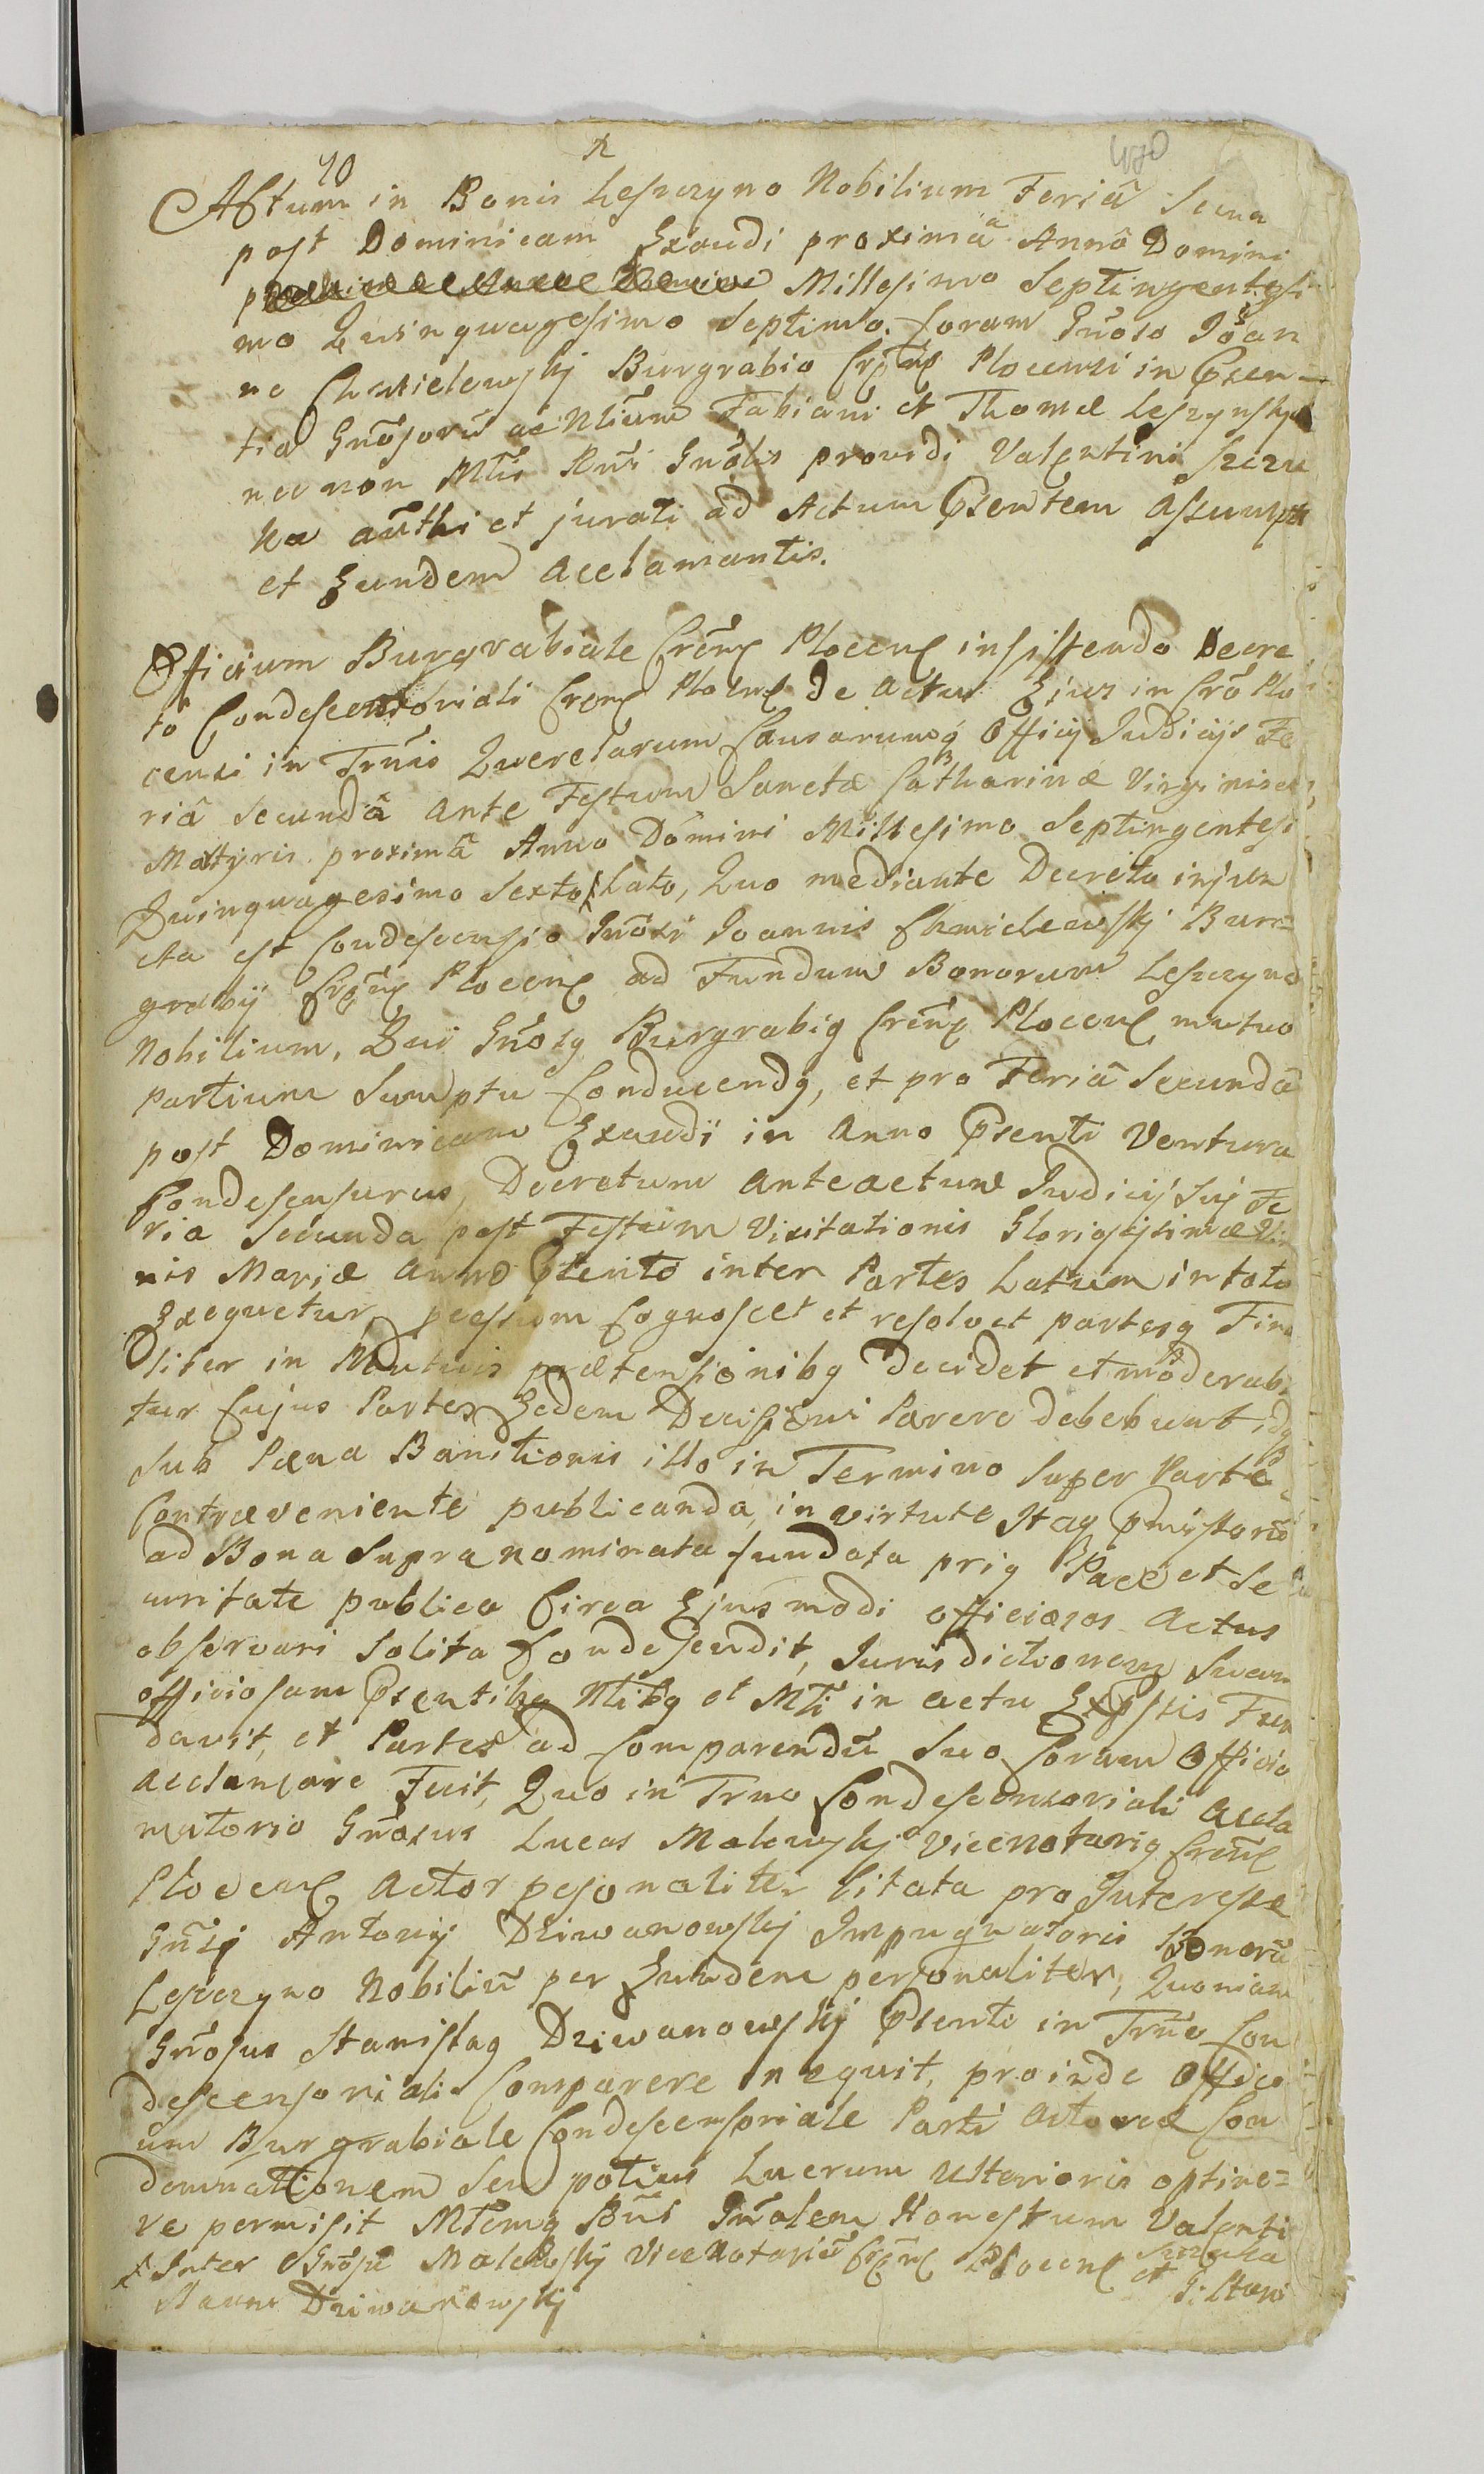 40
470
Actum in Bonis Leszczyno Nobilium Feriâ Secun
post Dominicam Exaudi proximâ Anno Domini
Millesimo Septingentesi
mo Quinquagesimo Septimo. Coram Gnoso Joan
ne Chmielewskj Burgrabio Crens Plocensi in Psen-
tia Gnosorũ ac Nlium Fabiani et Thomæ Leszynskj
nec non Mtis Rni Gnalis providi Valentini Szczu
ka authi et jurati ad Actum Psentem Assumpti
et Eundem Acclamantis.
Officium Burgrabiale Crens Plocens insistendo Decre
to Condescensoriali Crens Plocens de Actu Ejus in Cro Plo
censi in Trnis Querelarum Causarumq Officij Judicijs Fe
riâ Secundâ ante Festum Sanctæ Catharinæ Virginis et
Martyris proximâ Anno Domini Millesimo Septingentesi
Quinquagesimo Sexto Lato, Quo mediante Decreto injun
cta est Condescensio Gnosi Joannis Chmielewskj Bur=
grabij Crens Plocens ad Fundum Bonorum Leszczyno
Nobilium, Qui Gnosq Burgrabiq Crens Plocens mutuo
Partium Sumptu Conducendq, et pro Feriâ Secundâ
post Dominicam Exaudi in Anno Psenti Ventura
Condescensurus, Decretum anteactum Judicij Sui Fe
ria Secunda post Festum Visitationis Gloriosissimæ Vir
nis Mariæ Anno Psenti inter Partes Latum in toto
Exequetur, Cognoscet et resolvet partesq Fina
liter in Mutuis prætensionibq decidet et moderabi
tur Cujus Partes Eedem Decisioni Parere debebunt idq
Sub Pæna Bannitionis illo in Termino Super Parte
Contraveniente publicanda, in virtute Itaq Pmissorũ
ad Bona Supra nominata fundata priq Pace et Se
curitate publica Circa Ejusmodi officiosos Actus
observari Solita Condescendit, Jurisdictionem Suam
officiosam Psentibq Nlibq et Mti in actu Expssis Fun
davit, et Partes ad Comparendũ Suo Coram Officio
acclamare Fecit, Quo in Trno Condescensoriali Accla
matorio Gnosus Lucas Malewskj Vicenotariq Crens
Plocens Actor personaliter Citata pro Interesse
Gnsi Antonij Dziwanowskj Impugnatoris Bonorũ
Leszczyno Nobiliũ per Eundem personaliter, Quoniam
Gnosus Stanislaq Dziwanowskj Psenti in Trno Con
descensoriali Comparere nequit, proinde Offici
um Burgrabiale Condescensoriale Parti Actoreæ Con
demnationem Seu potius Lucrum Ulterioris optine=
re permisit Mtemq Rni Gnalem Honestum Valenti
Szczuka
Inter Gnosũ Malewskj ViceNotariũ Crens Plocens et G: Stani
slaum Dziwanowskj